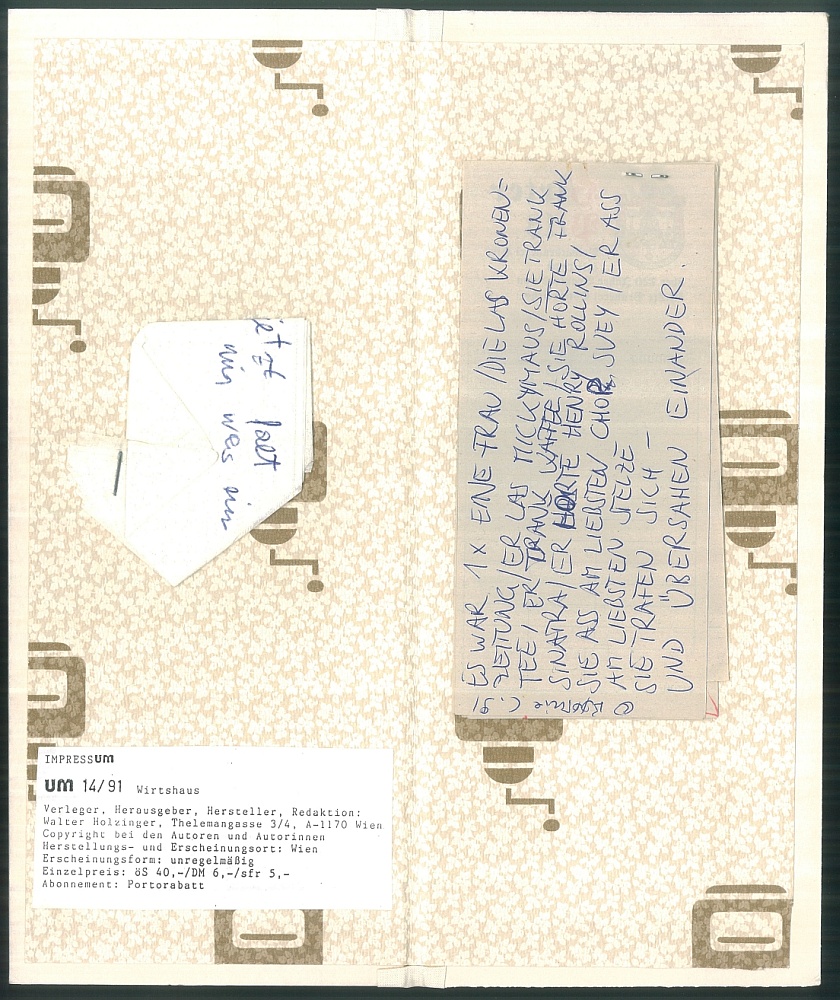 jetzt fällt
mir was ein
IMPRESSUM
UM 14/91 Wirtshaus
Verleger, Herausgeber, Hersteller, Redaktion:
Walter Holzinger, Thelemangasse 3/4, A-1170 Wien
Copyright bei den Autoren und Autorinnen
Herstellungs- und Erscheinungsort: Wien
Erscheinungsform: unregelmäßig
Einzelpreis: öS 40,-/DM 6,-/sfr 5,-
Abonnement: Portorabatt
ES WAR 1x EINE FRAU / DIE LAS KRONEN=
ZEITUNG / ER LAS MICKYMAUS / SIE TRANK
TEE / ER TRANK KAFFEE / SIE HÖRTE FRANK
SINATRA / ER HÖRTE HENRY ROLLINS /
SIE ASS AM LIEBSTEN CHOP SUEY / ER ASS
AM LIEBSTEN STELZE –
SIE TRAFEN SICH –
UND ÜBERSAHEN EINANDER.
© C. 91